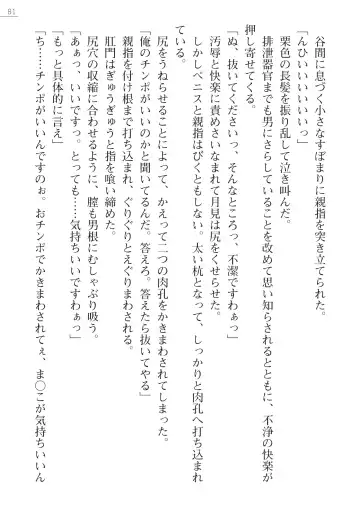 81
谷間に息づく小さなすぼまりに親指を突き立てられた。
「んひいいいいいいっ」
栗色の長髪を振り乱して泣き叫んだ。
排泄器官までも男にさらしていることを改めて思い知らされるとともに、不浄の快楽が
押し寄せてくる。
「ぬ、抜いてくださいっ、そんなところっ、不潔ですわぁっ」
汚辱と快楽に責めさいなまれて月見は尻をくせらせた。
しかしペニスと親指はびくともしない。太い杭となって、しっかりと肉孔へ打ち込まれ
ている。
尻をうねらせることによって、かえって二つの肉孔をかきまわされてしまった。
「俺のチンポがいいのかと聞いてるんだ。答えろ。答えたら抜いてやる」
親指を付け根まで打ち込まれ、ぐりぐりとえぐりまわされる。
肛門はぎゅうぎゅうと指を喰い締めた。
尻穴の収縮に合わせるように、膣も男根にむしゃぶり吸う。
「あぁっ、いいですっ。とっても……気持ちいいですわぁっ」
「もっと具体的に言え」
「ち……チンポがいいんですのぉ。おチンポでかきまわされてぇ、ま〇こが気持ちいいん